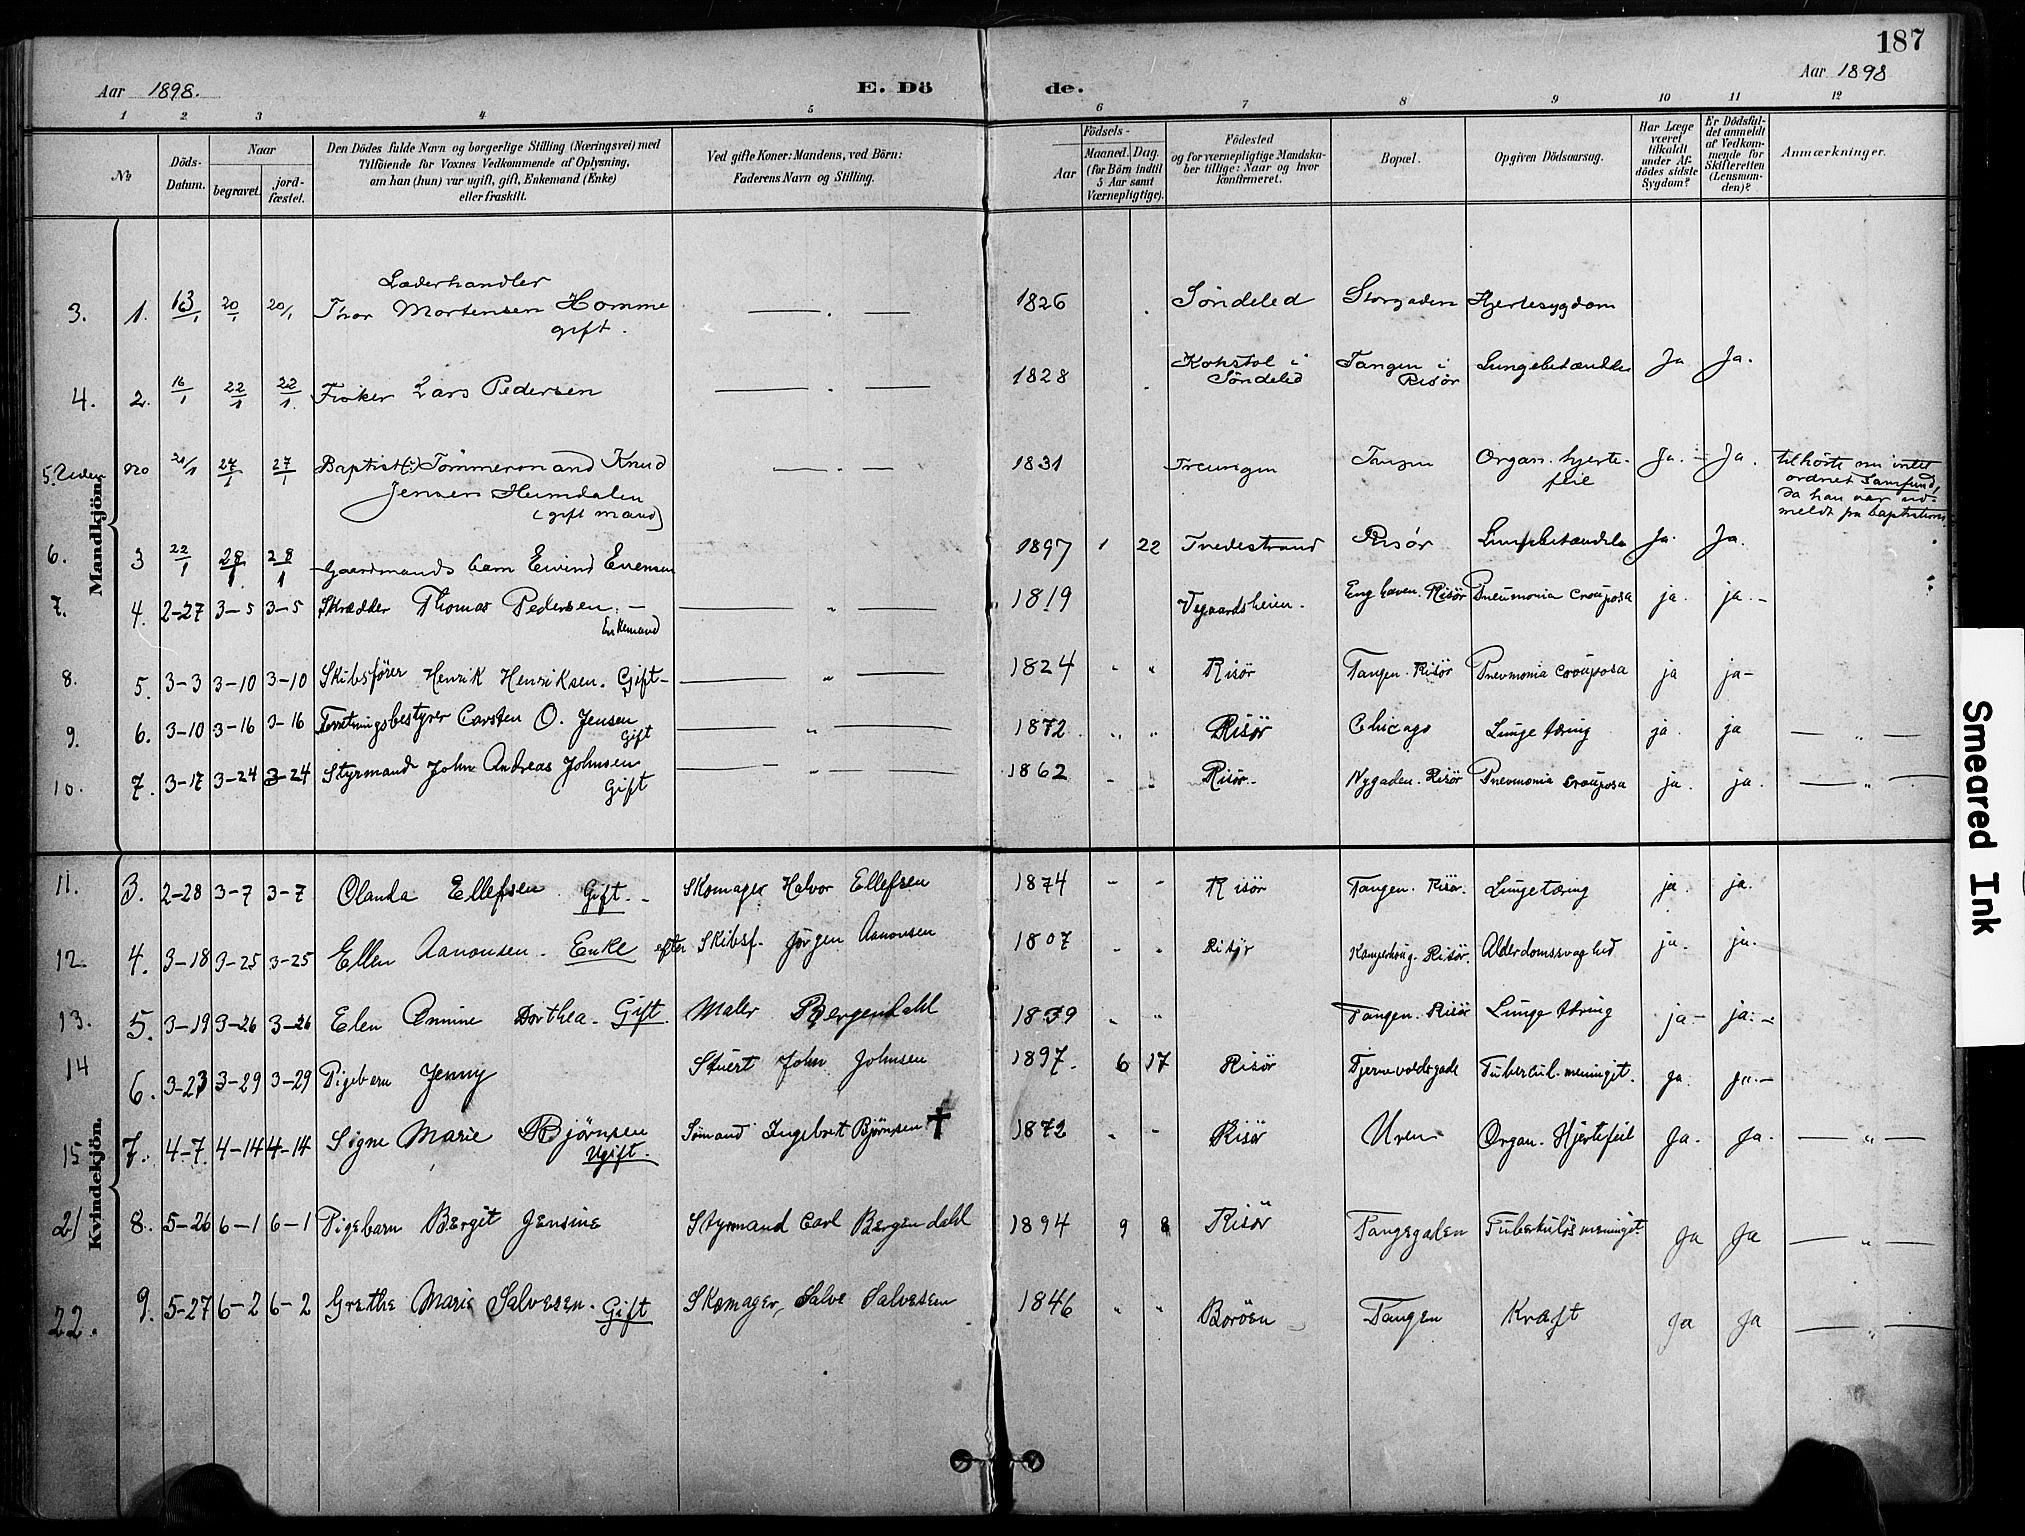 187
Aar 1898.
E. Dö de.
Aar 1898
1 2 3 4 5 6 7 8 9 10 11 12
No
Döds-Datum.
Naar
begravet.
jord-fæstet.
Den Dödes fulde Navn og borgerlige Stilling (Næringsvei) med
Tilföiende for Voxnes Vedkommende af Oplysning,
om han (hun) var ugift, gift, Enkemand (Enke)
eller fraskilt.
Ved gifte Koner: Mandens, ved Börn:
Faderens Navn og Stilling.
Födsels-
Aar
Maaned. Dag
(for Börn indtil
5 Aar samt
Værnepligtige).
Födested
og for værnepligtige Mandska-
ber tillige: Naar og hvor
konfirmeret.
Bopæl.
Opgiven Dödsaarsag.
Har Læge
været
tilkaldt
under Af-
dödes sidste
Sygdom?
Er Dödsfal-
det anmeldt
af Vedkom-
mende for
Skifteretten
(Lensman-
den)?
Anmærkninger.
Mandkjön.
Læderhandler
3. 1. 13/1 20/1 20/1 Thor Mortensen Homme — . — 1826 . Söndeled Storgaden Hjertesygdom
gift.
4. 2. 16/1 22/1 22/1 Fisker Lars Pedersen — . — 1828 . Kokstol i Söndeled Tangen i Risör Lungebetændelse Ja Ja.
5. Uden no 21/1 27/1 27/1 Baptist(:) Tömmermand Knud — . — 1831 Treungen Tangen Organ. hjerte- Ja. Ja. tilhörte nu intet
Jensen Heimdalen feil ordnet Samfund,
(gift mand) da han var ud-
meldt fra baptisterne
6. 3 22/1 28/1 28/1 Gaardmands barn Eivind Evensen 1897 1 22 Tvedestrand Risør Lungebetændelse Ja. Ja.
7. 4. 2-27 3-5 3-5 Skrædder Thomas Pedersen. — „ — 1819 Vegaardsheien. Enghaven. Risör Pneumonia crouposa ja. ja.-
Enkemand
8. 5. 3-3 3-10 3-10 Skibsfører Henrik Henriksen. Gift — „ — 1824 „ „ Risör Tangen. Risör Pnevmonia crouposa ja ja-
9. 6. 3-10 3-16 3-16 Forretningsbestyrer Carsten O. Jensen — „ — 1872. „ „ Risör Chicago Lunge tæring ja. ja — „ —
Gift
10. 7. 3-17 3-24 3-24 Styrmand John Andreas Johnsen — „ — 1862 „ „ Risör. Nygaden. Risör Pnevmonia crouposa ja. ja. — „ —
Gift
Kvindekjön.
11. 3. 2-28 3-7 3-7 Olanda Ellefsen Gift. Skomager Halvor Ellefsen 1874 „ „ Risör Tangen. Risör. Lungetæring ja. ja.
12. 4. 3-18 3-25 3-25 Ellen Aanonsen. Enke efter Skibsf. Jörgen Aanonsen 1807 „ „ Risör Risör. Alderdomssvaghed ja. ja.
13. 5. 3-19 3-26 3-26 Elen Dorthea. Gift Maler Bergendahl 1839 „ „ Tangen. Risör Lunge tæring ja.- ja.-
14 6. 3-23 3-29 3-29 Pigebarn Jenny Stuert John Johnsen 1897. 6 17 Risör Tjernvoldsgade Tubercul. meningit. ja. ja.-
15 7. 4-7. 4-14 4-14 Signe Marie Björnsen Sömand Ingebret Björnsen † 1872 „ „ Risör Uren Organ. Hjertefeil Ja. Ja. — „ —
Ugift.
21 8. 5-26 6-1 6-1 Pigebarn Bergit Jensine Styrmand Carl Bergendahl 1894 9 8 Risör Tangegaden Tuberkuløs meningit. Ja Ja — „ —
22. 9. 5-27 6-2 6-2 Grethe Marie Salvesen. Gift Skomager, Salve Salvesen 1846 „ „ Boröen Tangen Kræft Ja Ja — „ —
Smeared Ink